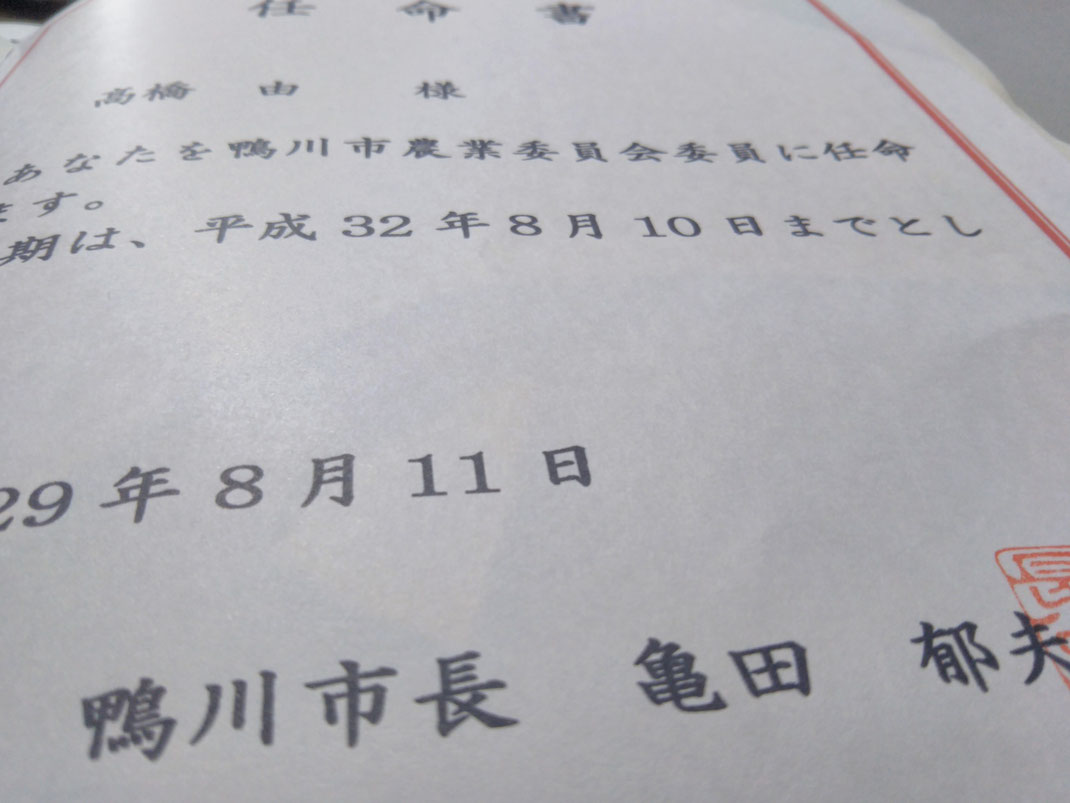 任命書
高橋 由 様
あなたを鴨川市農業委員会委員に任命
ます。
期は、平成32年8月10日までとし
29年8月11日
鴨川市長 亀田 郁夫